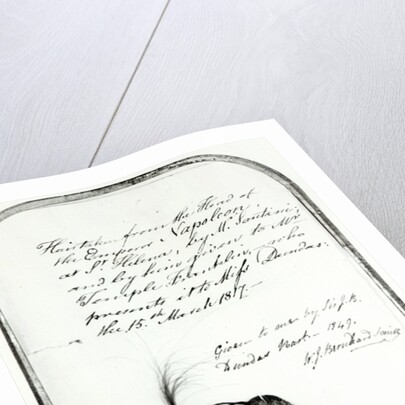 Hair taken from the Head of
the Emperor Napoleon,
at St Helena, by M. Santini,
and by him given to Mr
Temple Franklin, who
presents it to Miss Dundas.
the 15th March 1817.—
Given to me by Sir J. B.
Dundas Bart — 1849.